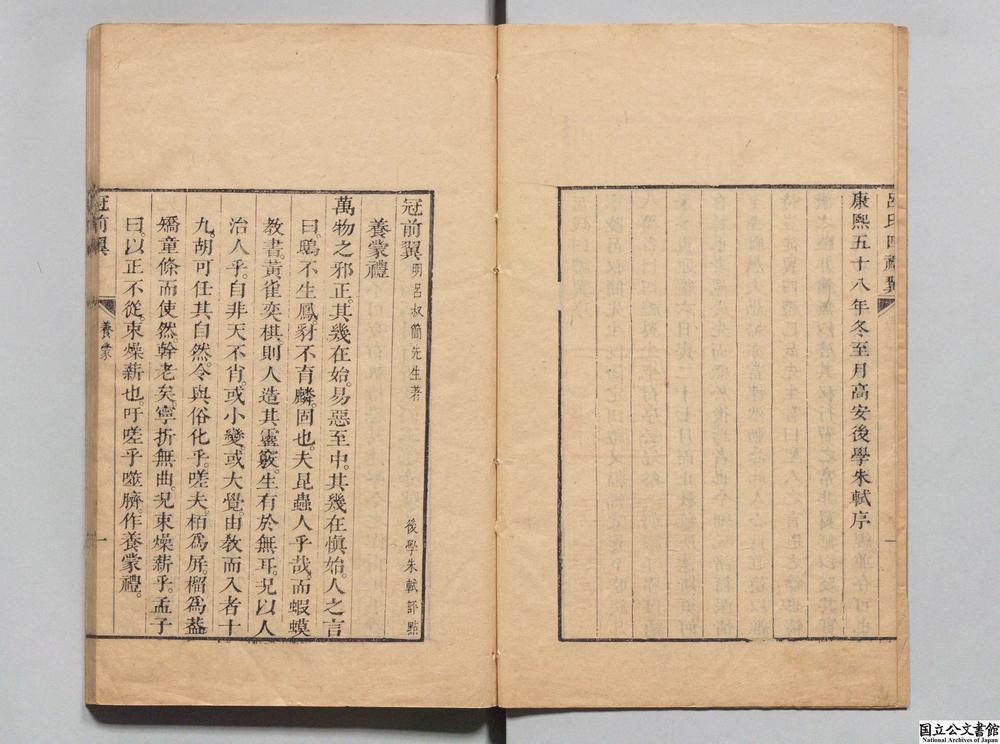 呂氏四禮翼
一
康熙五十八年冬至月高安後學朱軾序
冠前翼 明呂叔簡先生著 後學朱軾評點
養蒙禮
萬物之邪正。其幾在始。易惡至中。其幾在慎始。人之言
曰。鴟不生鳳。豺不育麟。固也。夫昆蟲人乎哉。而蝦蟆
教書。黃雀奕棋。則人造其靈竅。生有於無耳。況以人
治人乎。自非天不肖。或小變。或大覺。由教而入者十
九。胡可任其自然。令與俗化乎。嗟夫。栢為屏。榴為葢
矯童條而使然。幹老矣。寧折無曲。況束燥薪乎。孟子
曰。以正不從。束燥薪也。吁嗟乎噬臍。作養蒙禮。
冠前翼
養蒙
一
国立公文書館
National Archives of Japan